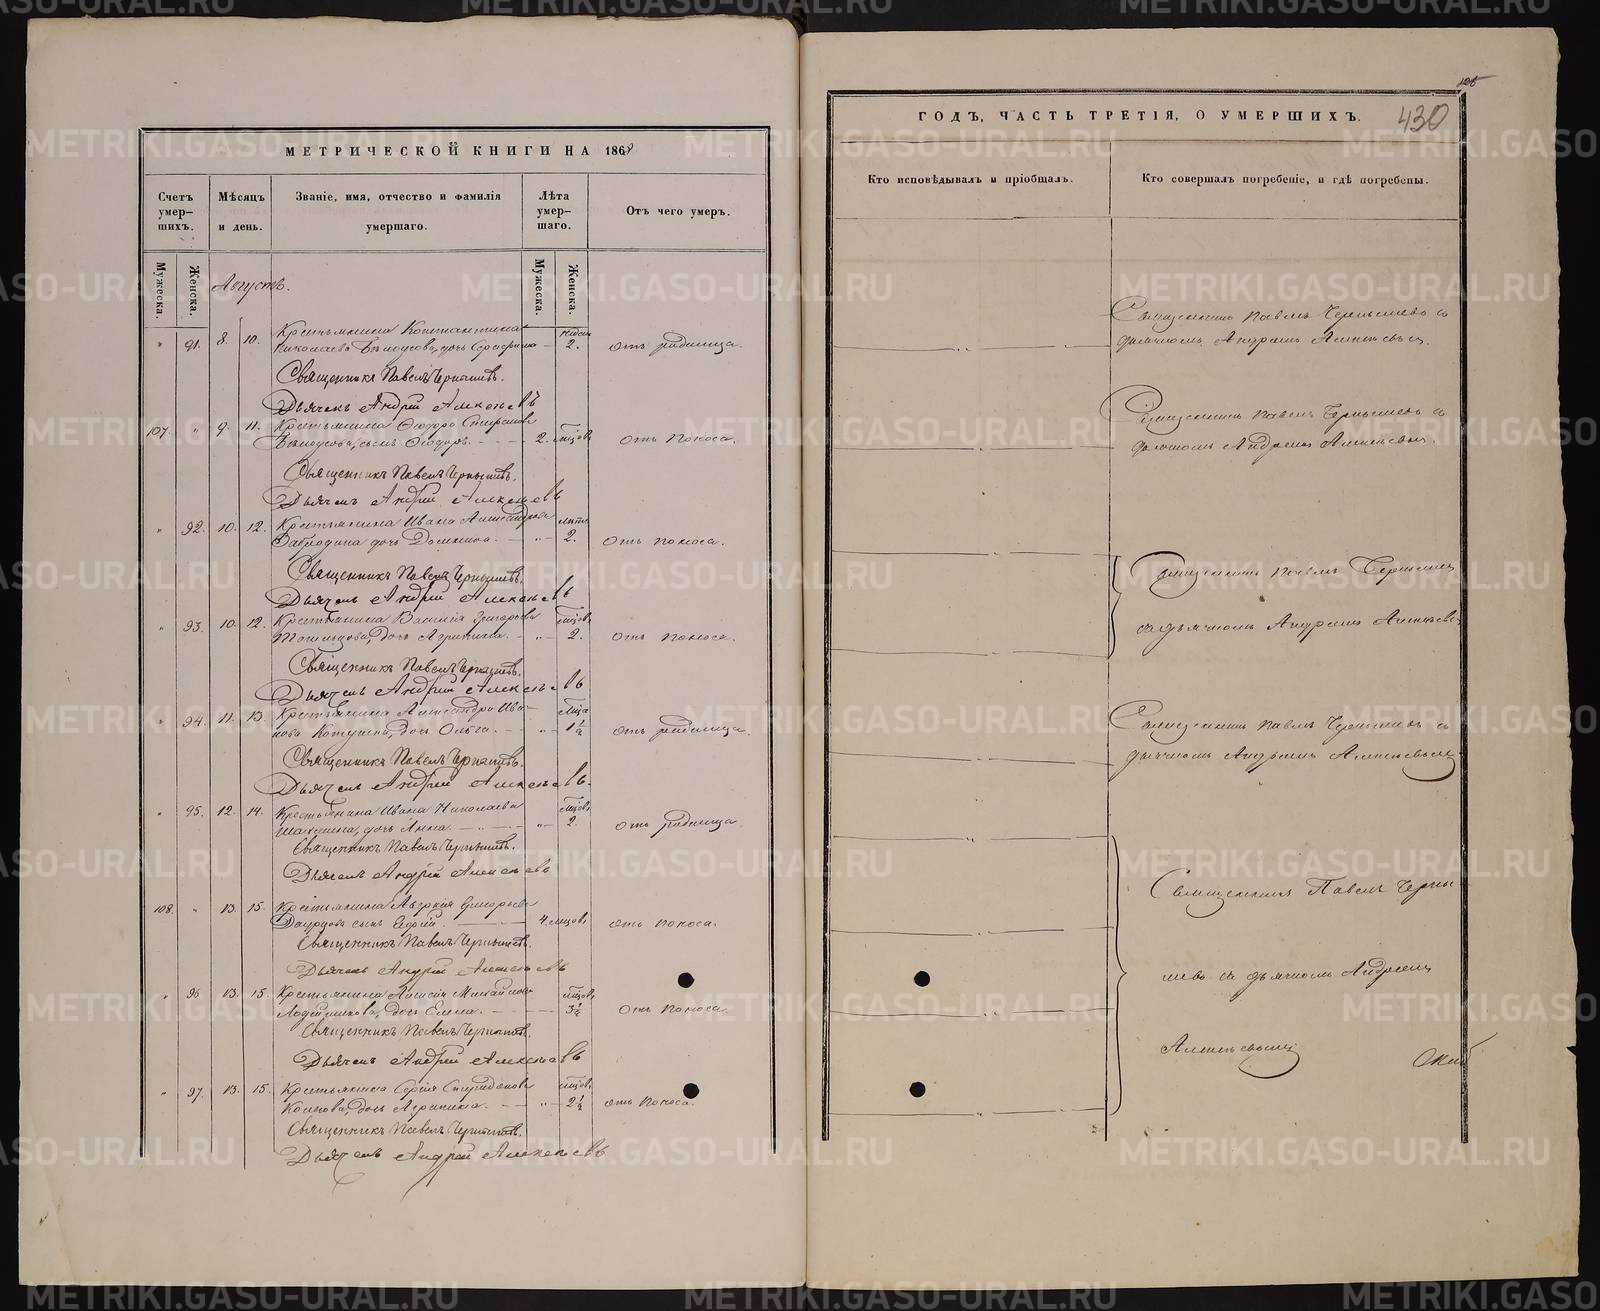 МЕТРИЧЕСКОЙ КНИГИ НА 1868
Счетъ умер-шихъ.
Мѣсяцъ и день.
Званіе, имя, отчество и фамилія умершаго.
Лѣта умер-шаго.
Отъ чего умеръ.
Мужеска.
Женска.
Мужеска.
Женска.
Августъ.
" 91. 8. 10. Крестьянина Константина
Николаева Бѣлоусова, дочь 2. отъ родимца.
Священникъ Павелъ Чернышевъ.
Дьячекъ Андрей Алексѣевъ
107. " 9. 11. Крестьянина Ѳеодора
сынъ Ѳеодоръ. 2. мѣсяцовъ отъ поноса.
Священникъ Павелъ Чернышевъ.
Дьячекъ Андрей Алексѣевъ
" 92. 10. 12. Крестьянина Ивана Александрова
дочь Домника. " 2. отъ поноса.
Священникъ Павелъ Чернышевъ.
Дьячекъ Андрей Алексѣевъ
" 93. 10. 12. Крестьянина Василія Григорьева
дочь Агрипина. " 2. отъ поноса.
Священникъ Павелъ Чернышевъ.
Дьячекъ Андрей Алексѣевъ
" 94. 11. 13. Крестьянина Александра Ива-
нова дочь Ольга. " 1½ отъ родимца.
Священникъ Павелъ Чернышевъ.
Дьячекъ Андрей Алексѣевъ.
" 95. 12. 14. Крестьянина Ивана Николаева
дочь Анна. " 2. отъ родимца.
Священникъ Павелъ Чернышевъ.
Дьячекъ Андрей Алексѣевъ
108. " 13. 15. Крестьянина Григорьева
сынъ Сергій. 4. отъ поноса.
Священникъ Павелъ Чернышевъ.
Дьячекъ Андрей Алексѣевъ
" 96 13. 15. Крестьянина Михайлова
дочь Елена. 3½ отъ поноса
Священникъ Павелъ Чернышевъ.
Дьячекъ Андрей Алексѣевъ
" 97. 13. 15. Крестьянина Сергія Спиридонова
дочь Агрипина. " 2½ отъ поноса.
Священникъ Павелъ Чернышевъ.
Дьячекъ Андрей Алексѣевъ
ГОДЪ, ЧАСТЬ ТРЕТІЯ, О УМЕРШИХЪ.
430
Кто исповѣдывалъ и пріобщалъ.
Кто совершалъ погребеніе, и гдѣ погребены.
Священникъ Павелъ Чернышевъ съ
дьячкомъ Андреемъ Алексѣевымъ.
Священникъ Павелъ Чернышевъ съ
дьячкомъ Андреемъ Алексѣевымъ.
Священникъ Павелъ Чернышевъ
съ дьячкомъ Андреемъ Алексѣевы
Священникъ Павелъ Чернышевъ съ
дьячкомъ Андреемъ Алексѣевымъ
Священникъ Павелъ Черны
шевъ съ дьячкомъ Андреемъ
Алексѣевымъ
METRIKI.GASO-URAL.RU